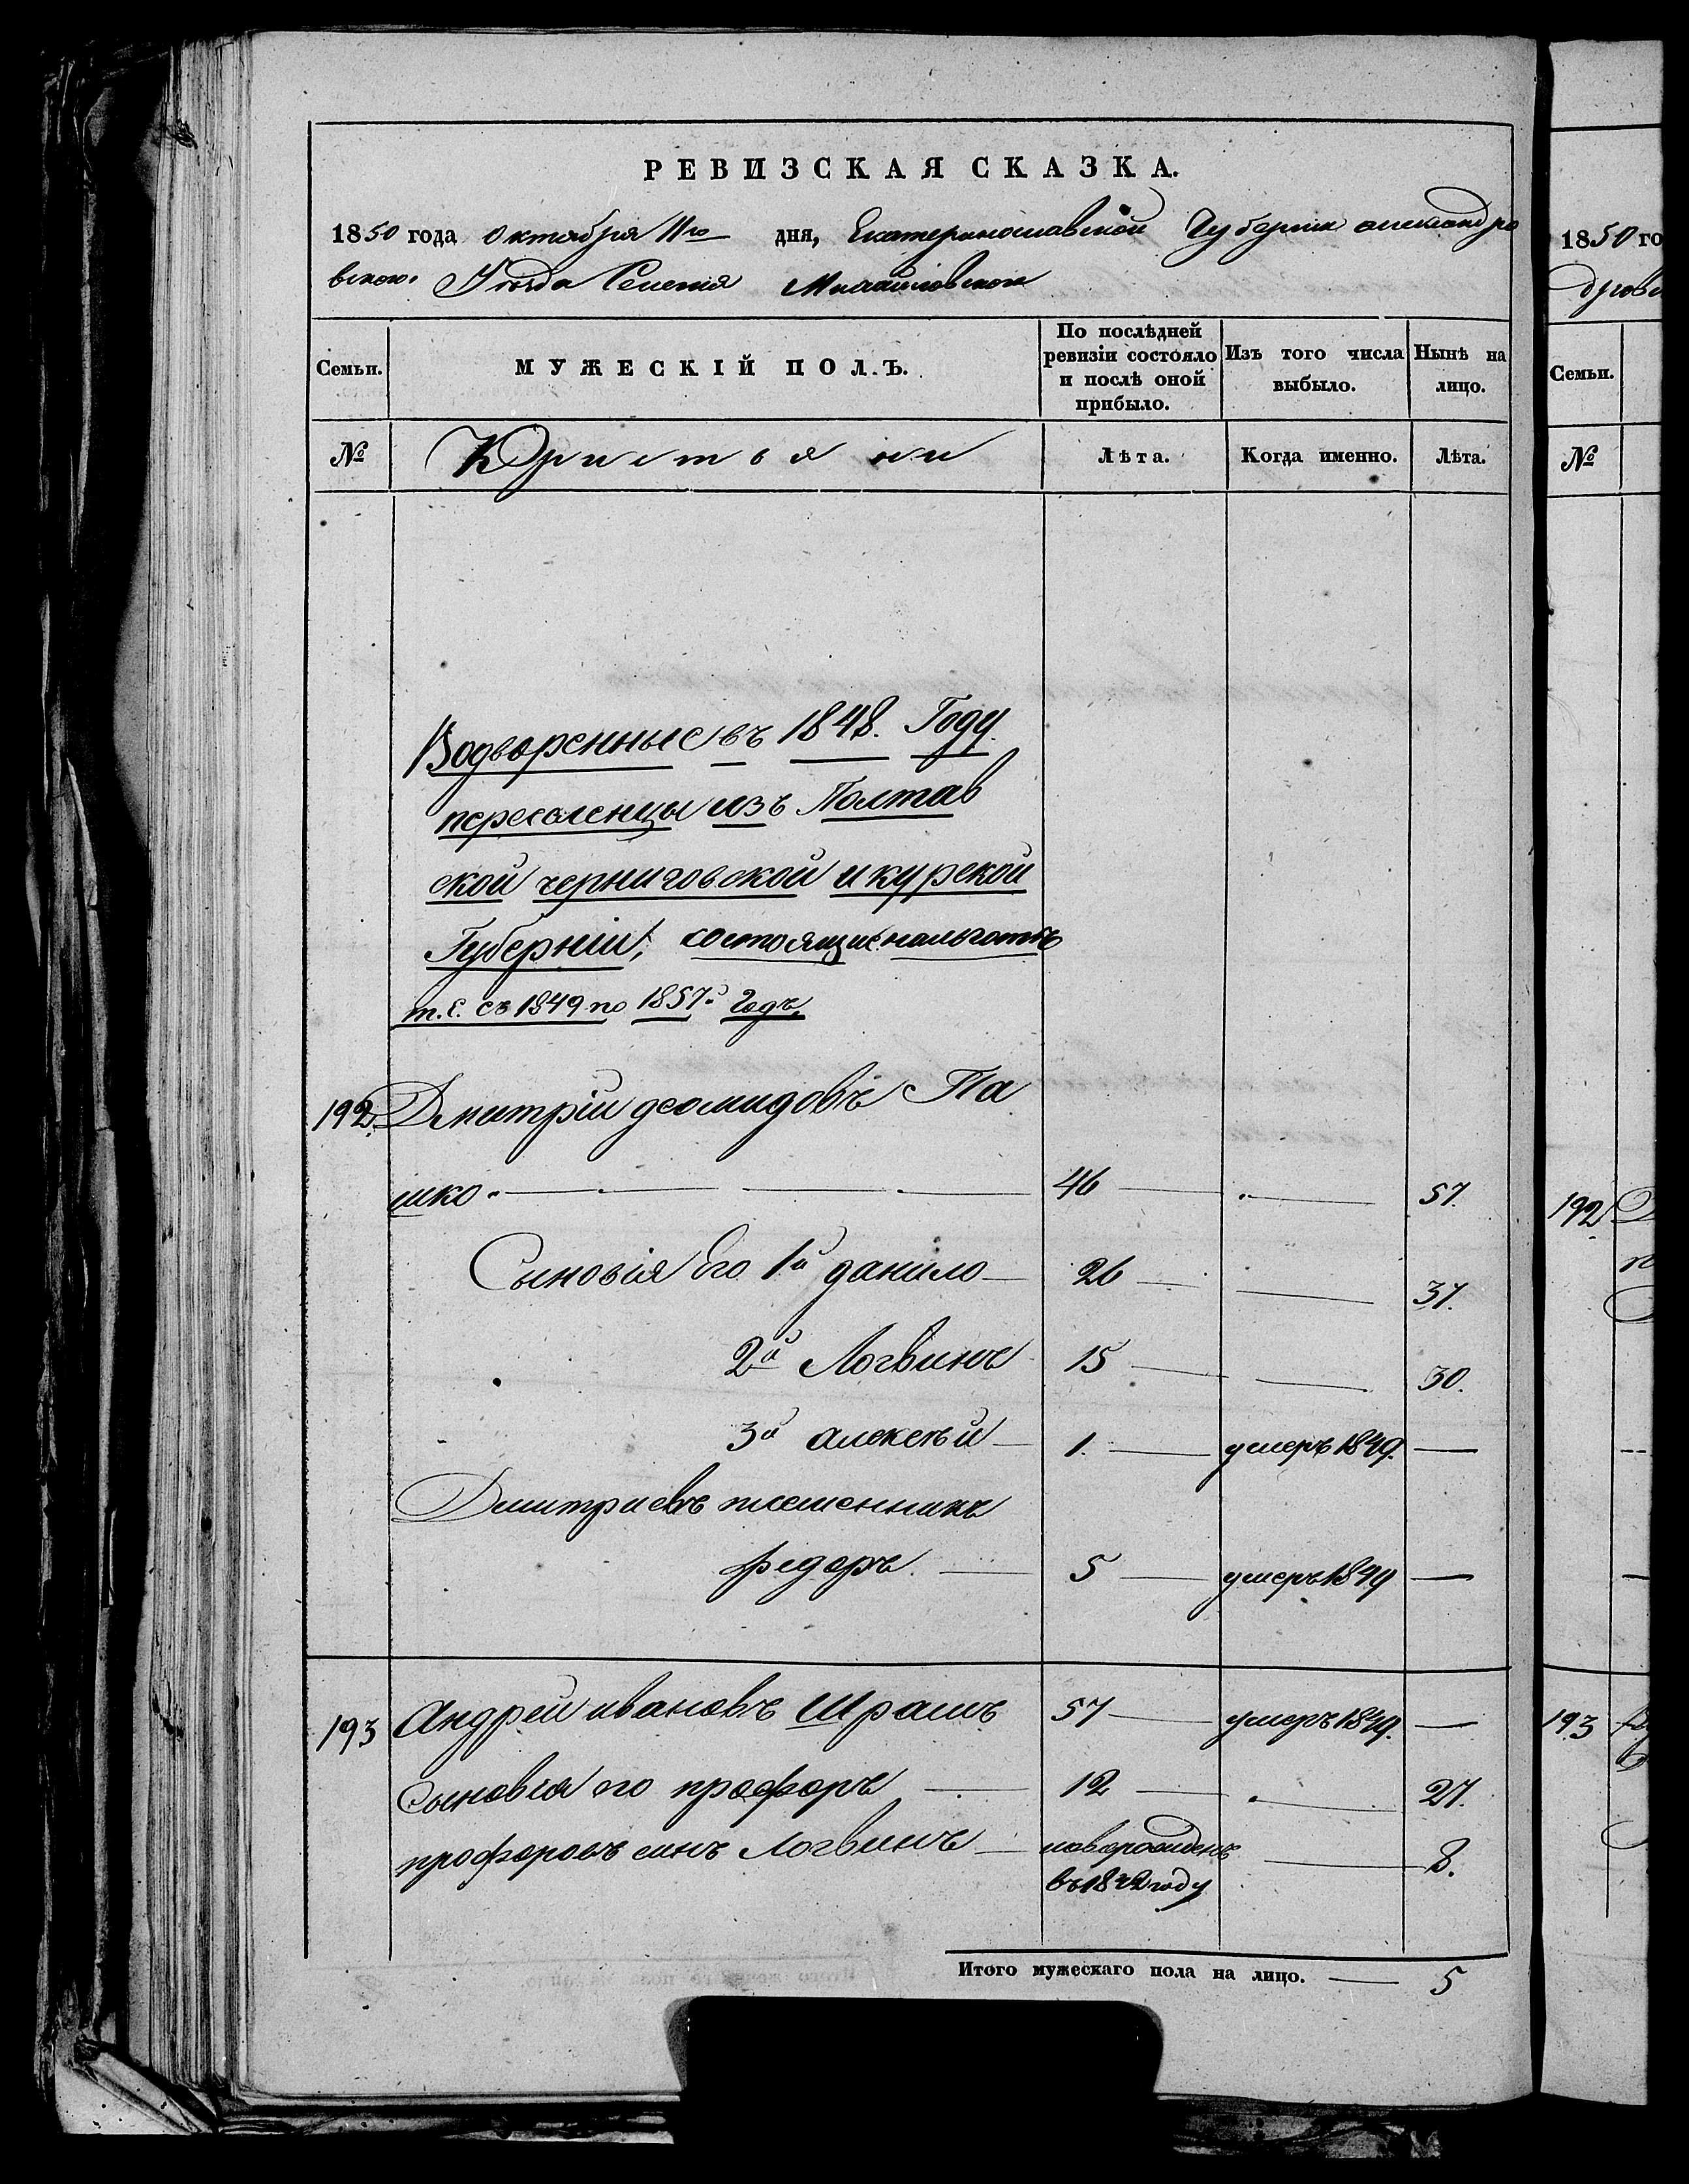 РЕВИЗСКАЯ СКАЗКА.
1850 года Октября 11го дня, Екатеринославской Губернии александро
вского Уезда Селения Михайловского
Семьи. МУЖЕСКІЙ ПОЛЪ. По послѣдней ревизіи состояло и послѣ оной прибыло. Изъ того числа выбыло. Нынѣ на лицо.
№ Кристьяни Лѣта. Когда именно. Лѣта.
Водворенные въ 1848. Году
переселенцы изъ Полтав
ской черниговской и курской
Губерніи, состоящие нальготѣ
т.е. съ 1849 по 1857й Годъ,
192 Дмитрій деомидовъ Па
шко 46 57.
Сыновія Его 1й данило 26 37.
2й Логвинъ 15 30.
3й алексѣй 1. умеръ 1849.
Дмитриевъ племенникъ
федоръ 5 умеръ 1849
193 Андрей ивановъ Шрамъ 57 умеръ 1849.
Сыновия его профоръ 12 27.
профоровъ синъ Логвинъ новорожденъ 8.
въ 1842 году
Итого мужескаго пола на лицо. 5
1850 го
дровс
Семьи.
№
192
193